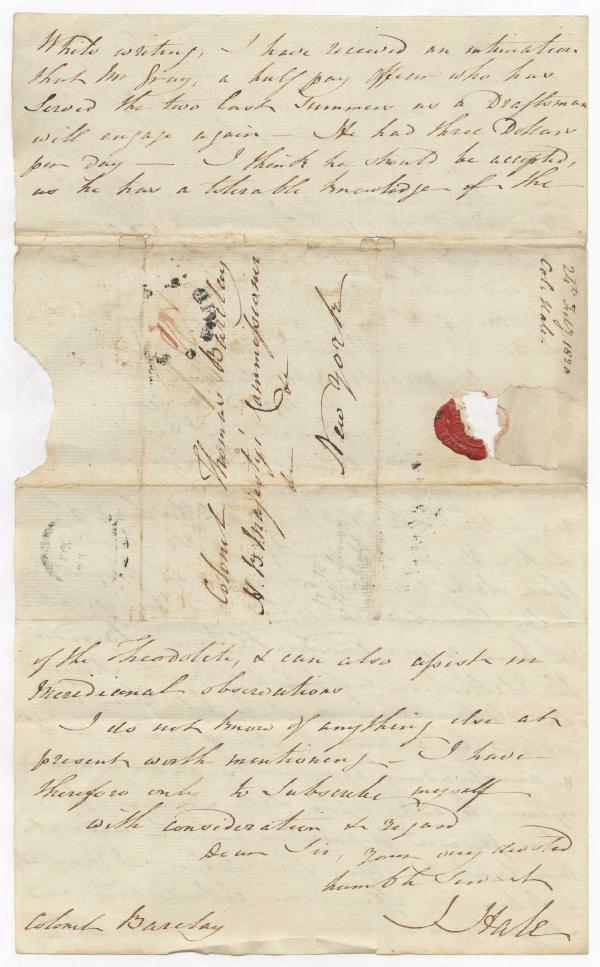 While writing, I have received an intimation
that Mr Gray, a half pay officer who has
served the two last Summers as a Draftsman
will engage again — He had three Dollars
per day — I think he should be accepted,
as he has a tolerable knowledge of the
24th Feby 1820
Col. Hale.
PAID
Colonel Thomas Barclay
H. B. Majesty's Commissioner
&c
&c
New York
of the Theodolite, & can also assist in
Meridional observations
I do not know of anything else at
present worth mentioning — I have
therefore only to subscribe myself
with consideration & regard
Dear Sir, your very devoted
humble Servant
J Hale
Colonel Barclay